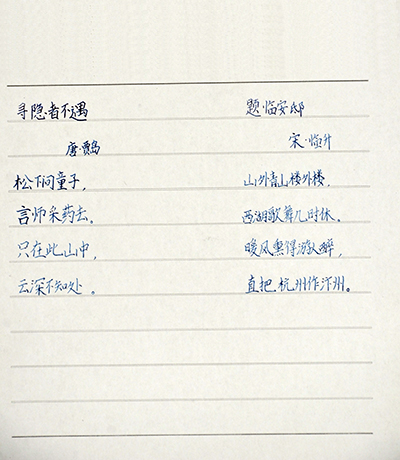 寻隐者不遇
唐·贾岛
松下问童子，
言师采药去。
只在此山中，
云深不知处。
题·临安邸
宋·临升
山外青山楼外楼，
西湖歌舞几时休。
暖风熏得游人醉，
直把杭州作汴州。